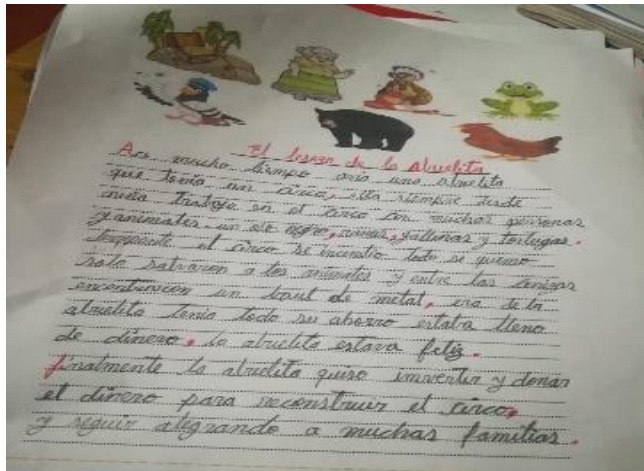 El tesoro de la Abuelita
Ace mucho tiempo avia una abuelita
que tenia un circo, ella siempre desde
niña trabajo en el circo con muchas personas
y animales un oso negro, aves, gallinas y tortugas.
derrepente el circo se incendio todo se quemo
solo salvaron a los animales y entre las cenizas
encontraron un baul de metal, era de la
abuelita tenia todo su ahorro estaba lleno
de dinero, la abuelita estava feliz.
finalmente la abuelita quiso imvertir y donar
el dinero para reconstruir el circo,
y seguir alegrando a muchas familias.